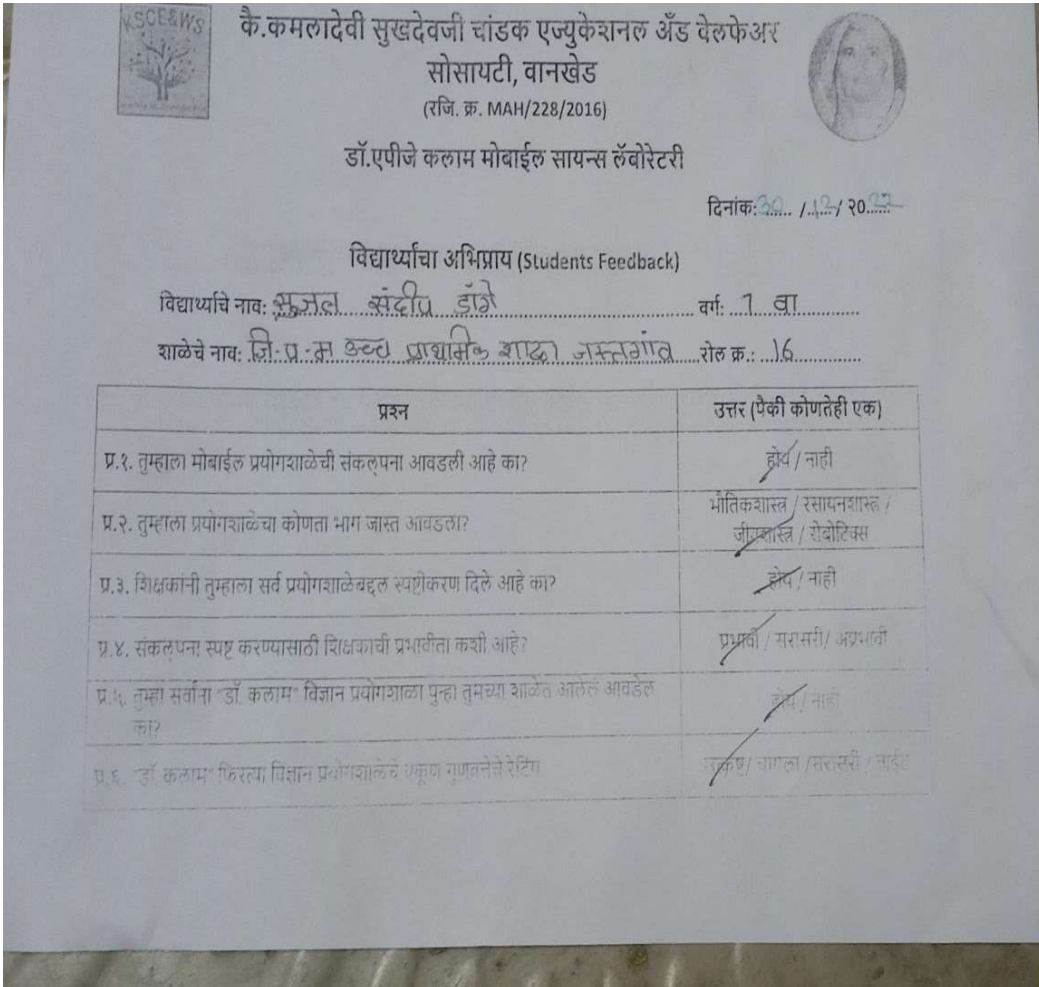 KSCE&WS
कै.कमलादेवी सुखदेवजी चांडक एज्युकेशनल अँड वेलफेअर
सोसायटी, वानखेड
(रजि. क्र. MAH/228/2016)
डॉ.एपीजे कलाम मोबाईल सायन्स लॅबोरेटरी
दिनांक: 30 / 12 / २०22
विद्यार्थ्यांचा अभिप्राय (Students Feedback)
विद्यार्थ्याचे नाव: सुजल संदीप डोंगे वर्ग: 7 वा
शाळेचे नाव: जि. प. म उच्च प्राथमिक शाळा जस्तगांव रोल क्र.: 16
प्रश्न उत्तर (पैकी कोणतेही एक)
प्र.१. तुम्हाला मोबाईल प्रयोगशाळेची संकल्पना आवडली आहे का? होय / नाही
प्र.२. तुम्हाला प्रयोगशाळेचा कोणता भाग जास्त आवडला? भौतिकशास्त्र / रसायनशास्त्र /
जीवशास्त्र / रोबोटिक्स
प्र.३. शिक्षकांनी तुम्हाला सर्व प्रयोगशाळेबद्दल स्पष्टीकरण दिले आहे का? होय / नाही
प्र.४. संकल्पना स्पष्ट करण्यासाठी शिक्षकाची प्रभावीता कशी आहे? प्रभावी / सरासरी/ अप्रभावी
प्र.५. तुम्हा सर्वांना "डॉ. कलाम" विज्ञान प्रयोगशाळा पुन्हा तुमच्या शाळेत आलेलं आवडेल
का? होय / नाही
प्र.६. "डॉ. कलाम" फिरत्या विज्ञान प्रयोगशाळेचे एकूण गुणवत्तेचे रेटिंग उत्कृष्ट/ चांगला /सरासरी / वाईट